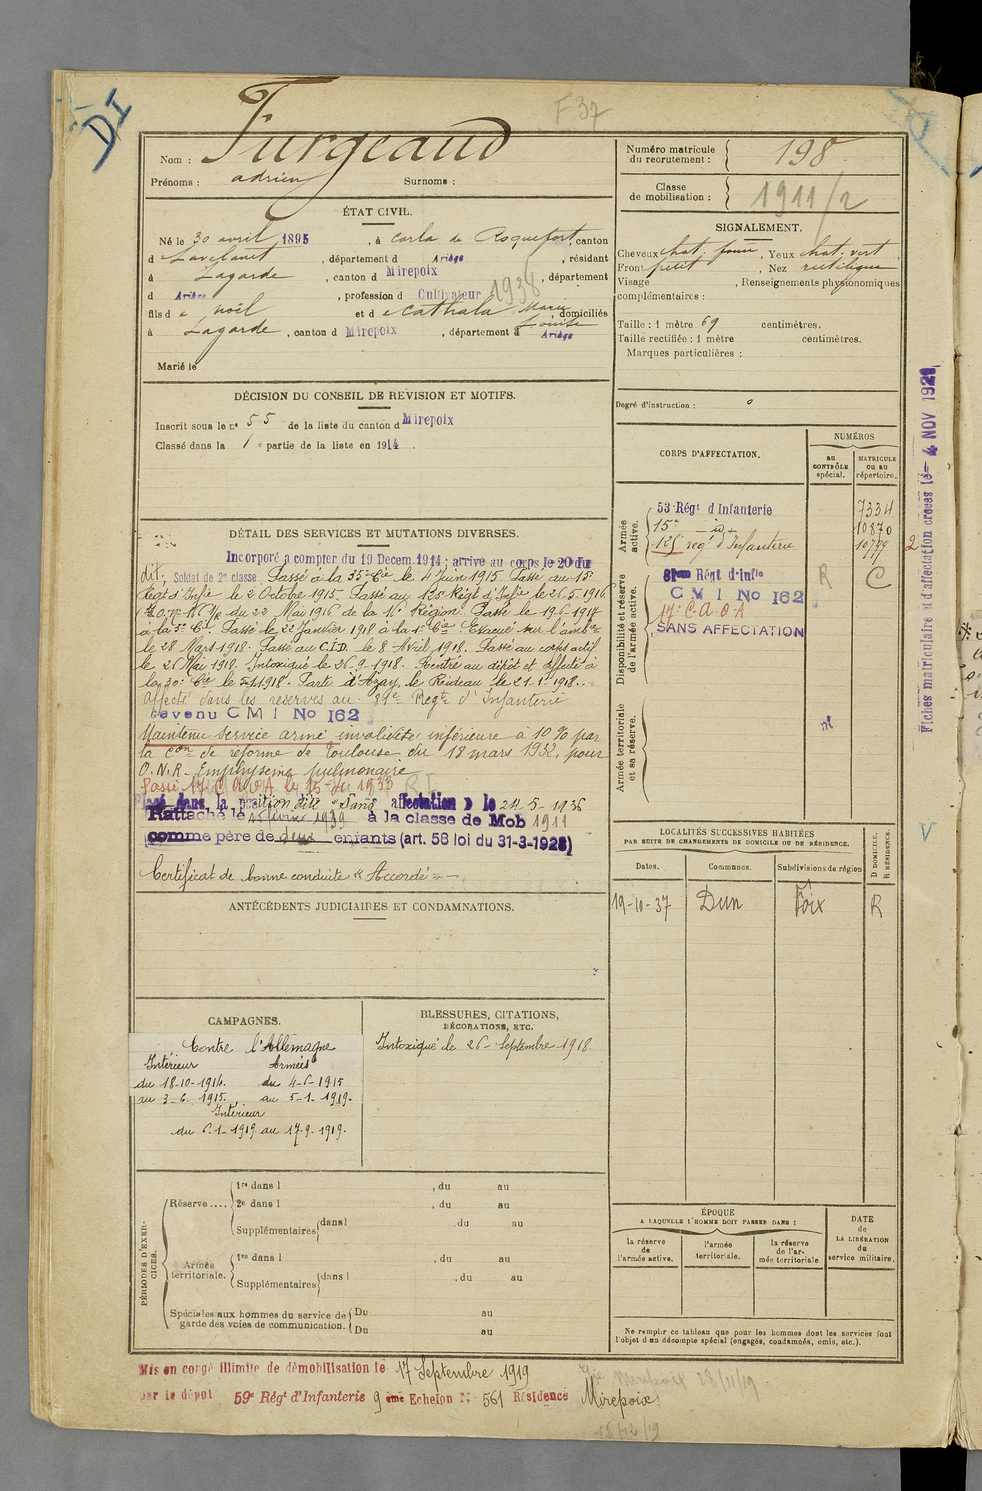 DI
F 37
Nom : Furgeaud
Prénoms : adrien Surnoms :
Numéro matricule du recrutement : 198
Classe de mobilisation : 1911/2
ÉTAT CIVIL.
Né le 30 avril 1895, à Carla de Roquefort, canton
d Lavelanet, département d Ariège, résidant
à Lagarde, canton d Mirepoix, département
d Ariège, profession d Cultivateur 1938
fils d e Noël et d e Cathala Marie Louise, domiciliés
à Lagarde, canton d Mirepoix, département d Ariège
Marié le
SIGNALEMENT.
Cheveux chat. foncé, Yeux chat. vert
Front petit, Nez rectiligne
Visage , Renseignements physionomiques
complémentaires :
Taille : 1 mètre 69 centimètres.
Taille rectifiée : 1 mètre centimètres.
Marques particulières :
Degré d'instruction : 0
DÉCISION DU CONSEIL DE REVISION ET MOTIFS.
Inscrit sous le n° 55 de la liste du canton d Mirepoix
Classé dans la 1e partie de la liste en 1914.
CORPS D'AFFECTATION.
NUMÉROS
au CONTRÔLE spécial.
MATRICULE ou au répertoire.
Armée active.
53 Régt d'Infanterie 7334
15e - id - 10870
125e régt d'Infanterie 10799
2
Disponibilité et réserve de l'armée active.
81eme Régt d'Infie R C
C M I No 162
17e C.A.O.A
SANS AFFECTATION
Armée territoriale et sa réserve.
Fiches matriculaire et d'affectation créées le - 4 NOV 1921
DÉTAIL DES SERVICES ET MUTATIONS DIVERSES.
Incorporé à compter du 19 Décem. 1914 ; arrivé au corps le 20 du
dit, Soldat de 2e classe. Passé à la 35e Cie le 4 Juin 1915. Passé au 15
Régt d'Infie le 2 Octobre 1915. Passé au 125e Régt d'Infie le 26.5.1916
du 22 Mai 1916 de la 11e Région. Passé le 19.6.1917
à la 5e Cie. Passé le 22 Janvier 1918 à la 1e Cie. Evacué sur l'ambce
le 28 Mars 1918. Passé au C.I.D. le 8 Avril 1918. Passé au corps actif
le 26 Mai 1918. Intoxiqué le 26.9.1918. Rentré au dépôt et affecté à
la 30e Cie le 1918. Parti d'Azay le Rideau le 21 1918.
Affecté dans les réserves au 81e Régt d'Infanterie
devenu C M I No 162
Maintenu service armé invalidité inférieure à 10 % par
la Con de réforme de Toulouse du 18 mars 1932, pour
O.N.R. Emphysème pulmonaire
Passé 17 C.A.O.A le 15-4-1933
Placé dans la position dite « Sans affectation » le 24-5-1936
Rattaché le 15 février 1939 à la classe de Mob 1911
comme père de deux enfants (art. 58 loi du 31-3-1928)
Certificat de bonne conduite « Accordé »
LOCALITÉS SUCCESSIVES HABITÉES
PAR SUITE DE CHANGEMENTS DE DOMICILE OU DE RÉSIDENCE.
Dates. Communes. Subdivisions de région
D DOMICILE. R RÉSIDENCE.
19-10-37 Dun Foix R
V
ANTÉCÉDENTS JUDICIAIRES ET CONDAMNATIONS.
CAMPAGNES.
Contre l'Allemagne
Intérieur Armées
du 18-10-1914. du 4-6-1915
au 3-6-1915. au 5-1-1919.
Intérieur
du 6-1-1919 au 17-9-1919.
BLESSURES, CITATIONS,
DÉCORATIONS, ETC.
Intoxiqué le 26 Septembre 1918.
PÉRIODES D'EXERCICES.
Réserve ....
1re dans l , du au
2e dans l , du au
Supplémentaires dans l , du au
Armée territoriale.
1re dans l , du au
Supplémentaires dans l , du au
Spéciales aux hommes du service de garde des voies de communication.
Du au
Du au
ÉPOQUE
A LAQUELLE L'HOMME DOIT PASSER DANS :
la réserve de l'armée active.
l'armée territoriale.
la réserve de l'armée territoriale
DATE de LA LIBÉRATION du service militaire.
Ne remplir ce tableau que pour les hommes dont les services font
l'objet d'un décompte spécial (engagés, condamnés, omis, etc.).
Mis en congé illimité de démobilisation le 17 Septembre 1919
par le dépôt 59e Régt d'Infanterie 9 ème Echelon N° 561 Résidence Mirepoix
Mirepoix 28/11/19
18/12/19